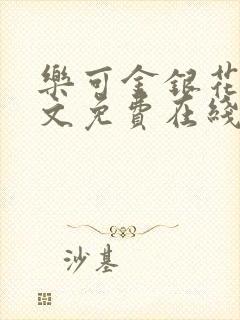 樂可金銀花
文免費在綫
沙基